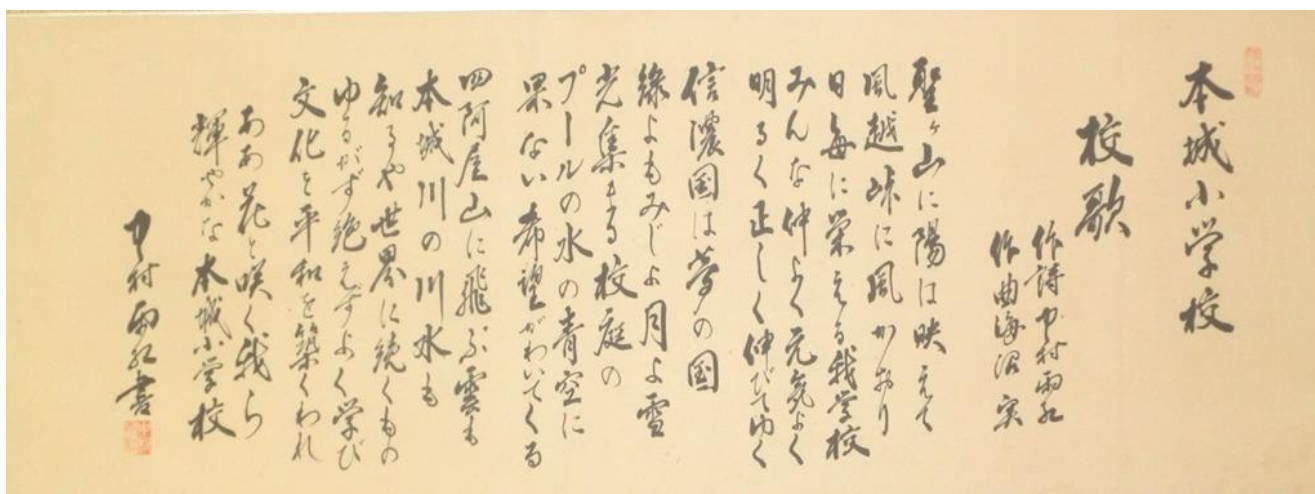 本城小学校
校歌
作詩 中村雨紅
作曲 海沼 実
聖ヶ山に陽は映えて
風越峠に風かおり
日毎に栄える我学校
みんな仲よく元気よく
明るく正しく伸びてゆく
信濃国は夢の国
緑よもみじよ月よ雪
光集まる校庭の
プールの水の青空に
果ない希望がわいてくる
四阿屋山に飛ぶ雲も
本城川の川水も
知るや世界に続くもの
ゆるがず絶えずよく学び
文化を平和を築くわれ
ああ花と咲く我ら
輝やかな本城小学校
中村雨紅書